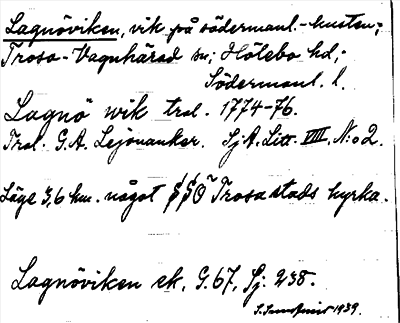 Lagnöviken, vik på södermanl.-kusten;
Trosa-Vagnhärad sn; Hölebo hd;
Södermanl. l.
Lagnö wik tral. 1774-76.
Tral. G.A. Lejonanker. SjA. Litt. VIII, N:o 2.
Läge 3,6 km. något SSO Trosa stads kyrka.
Lagnöviken sk. G.67, Sj: 238.
1939.